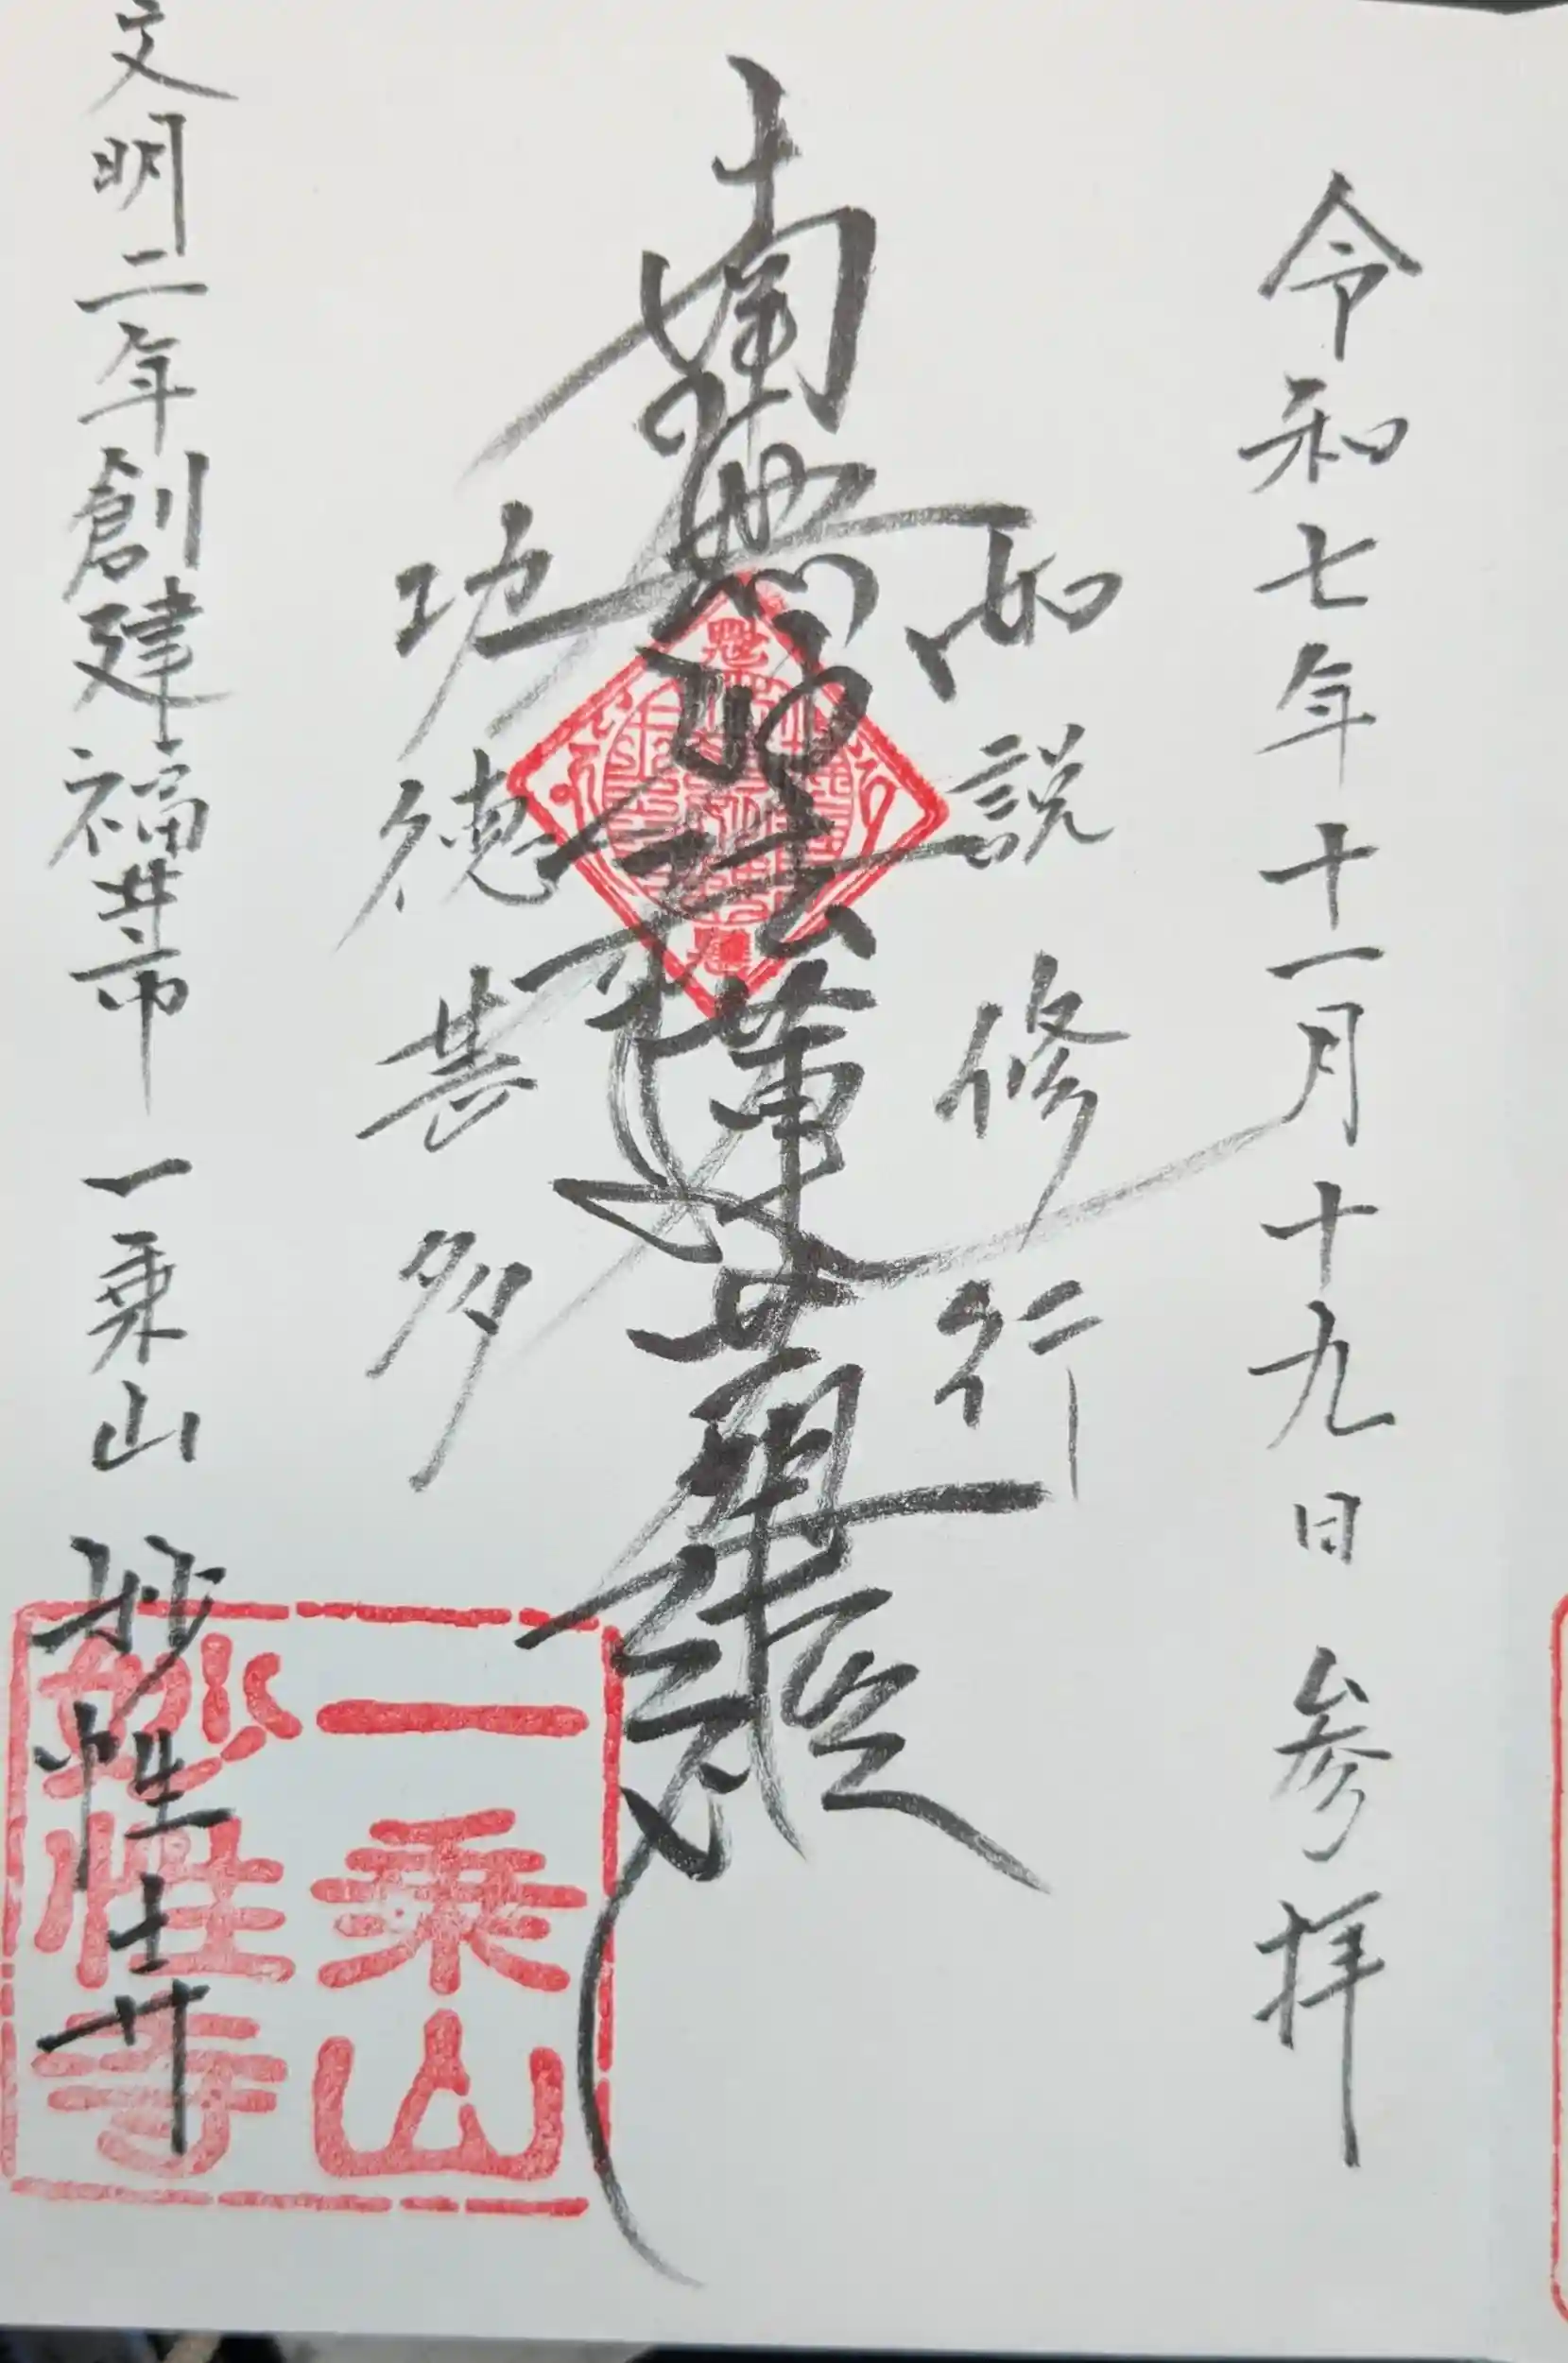 令和七年十一月十九日 参拝
如説修行
南無妙法蓮華経
功徳甚多
文明二年創建福井市 一乗山 妙性寺
一乗山
妙性寺